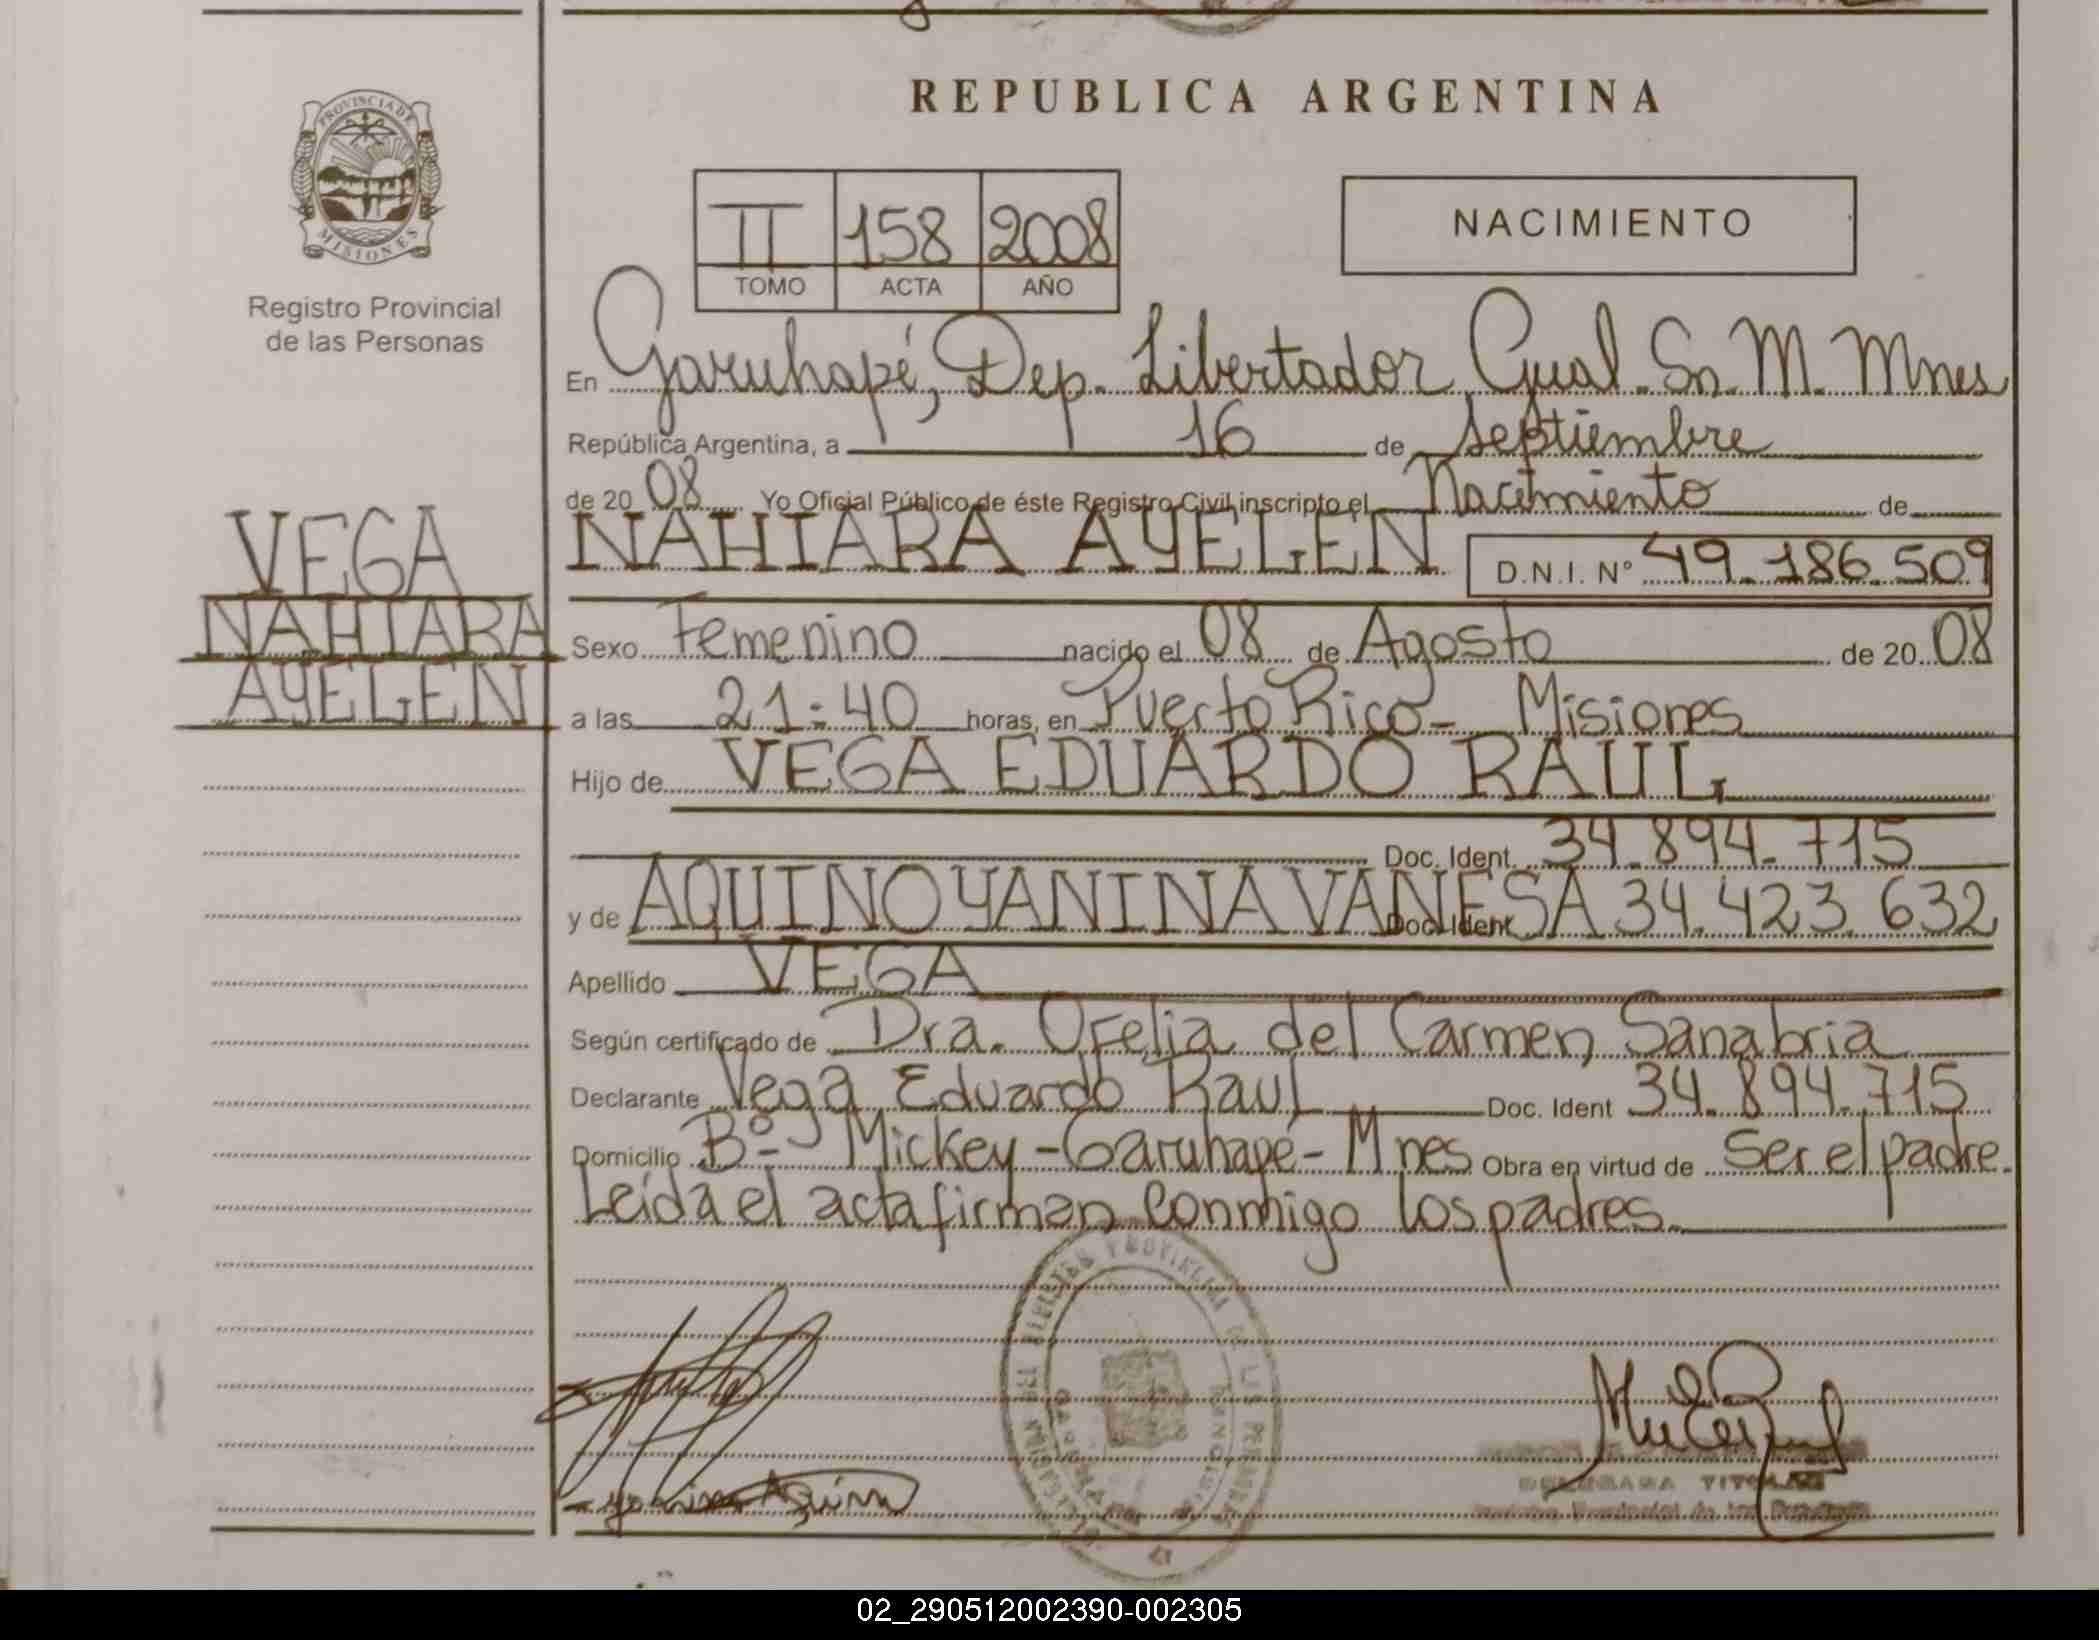 REPUBLICA ARGENTINA
PROVINCIA DE
MISIONES
Registro Provincial
de las Personas
II 158 2008
TOMO ACTA AÑO
NACIMIENTO
En Garuhapé, Dep. Libertador Gral. Sn. M. Mnes
República Argentina, a 16 de septiembre
de 20 08 Yo Oficial Público de éste Registro Civil inscripto el Nacimiento de
NAHIARA AYELEN D.N.I. Nº 49.186.509
VEGA
NAHIARA
AYELEN
Sexo Femenino nacido el 08 de Agosto de 20 08
a las 21:40 horas, en Puerto Rico- Misiones
Hijo de VEGA EDUARDO RAUL
Doc. Ident. 34.894.715
y de AQUINO YANINA VANESA Doc. Ident. 34.423.632
Apellido VEGA
Según certificado de Dra. Ofelia del Carmen Sanabria
Declarante Vega Eduardo Raul Doc. Ident 34.894.715
Domicilio Bº- Mickey-Garuhapé-Mnes Obra en virtud de Ser el padre.
Leída el acta firman conmigo los padres
DELEGADA TITULAR
Registro Provincial de las Personas
02_290512002390-002305